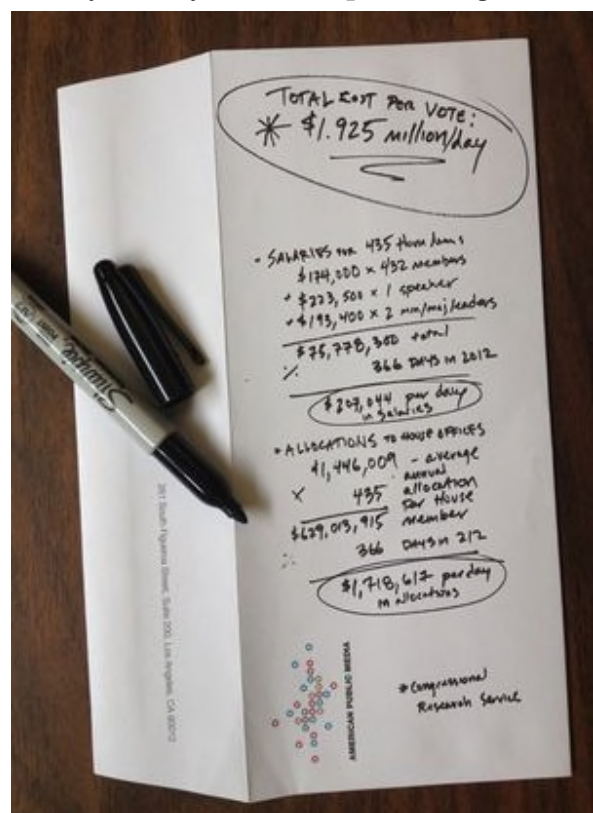 TOTAL COST PER VOTE:
* $1.925 million/day
- SALARIES FOR 435
$174,000 x 432 members
+ $223,500 x 1 speaker
+ $193,400 x 2 min/maj leaders
$75,778,300 total
÷ 366 DAYS IN 2012
$207,044 per day
in salaries
* ALLOCATIONS TO HOUSE OFFICES
$1,446,009 - average
annual
x 435 allocation
for House
$629,013,915 member
÷ 366 DAYS IN 212
$1,718,617 per day
in allocations
* Congressional
Research Service
AMERICAN PUBLIC MEDIA
261 South Figueroa Street, Suite 200, Los Angeles, CA 90012
Sharpie